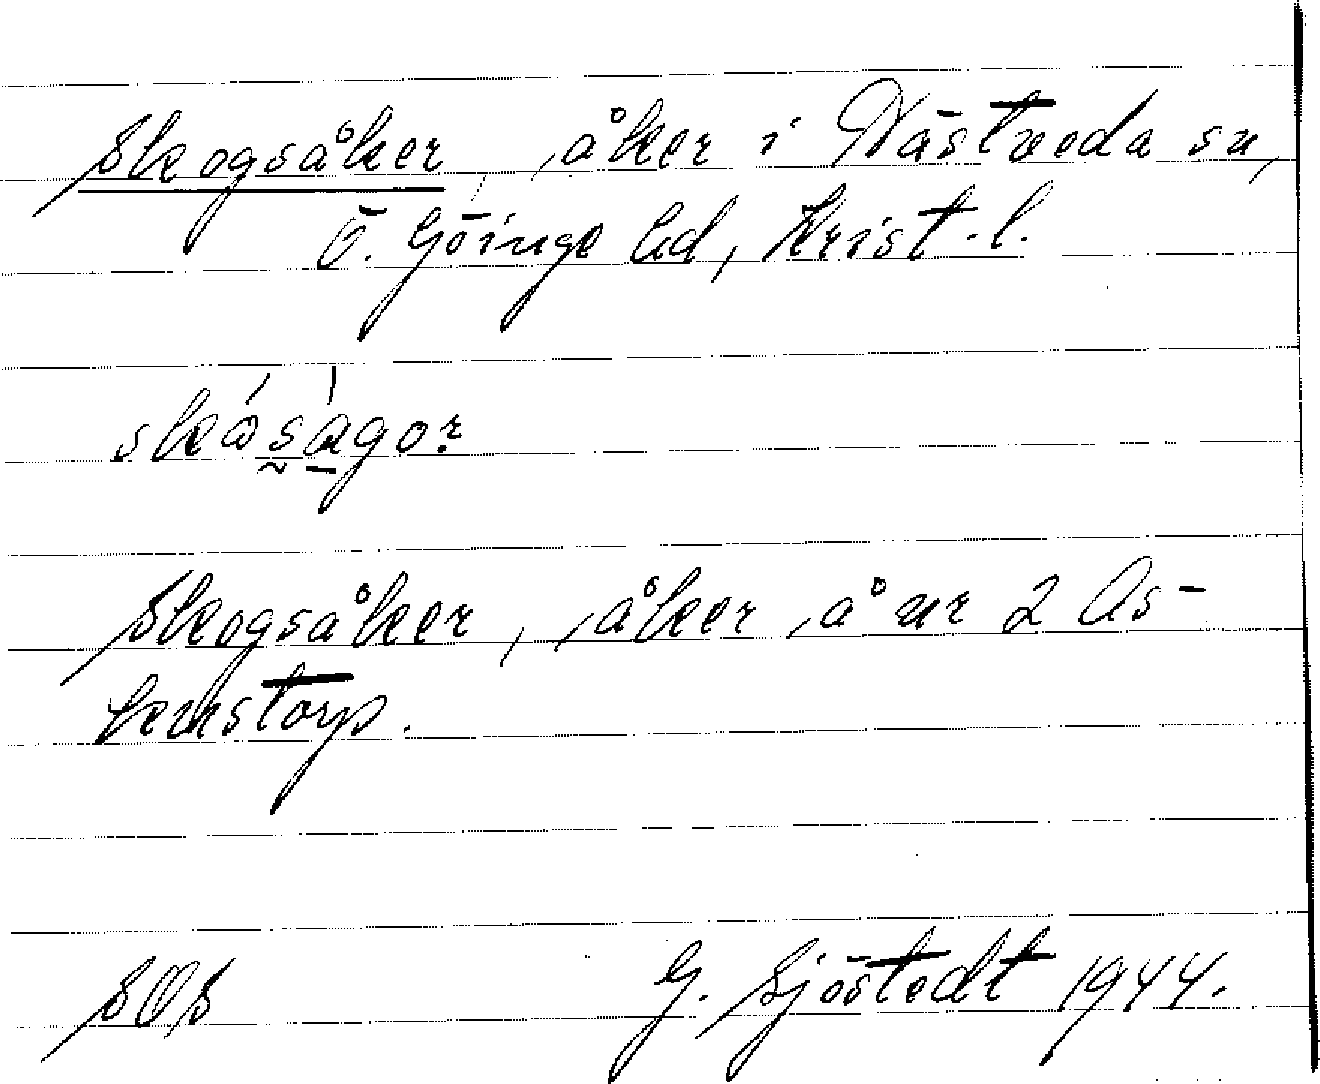 Skogsåker, åker i Västveda sn,
Ö. Göinge hd, Krist. l.
Skogsåker, åker å nr 2 As-
G. Sjöstedt 1944.